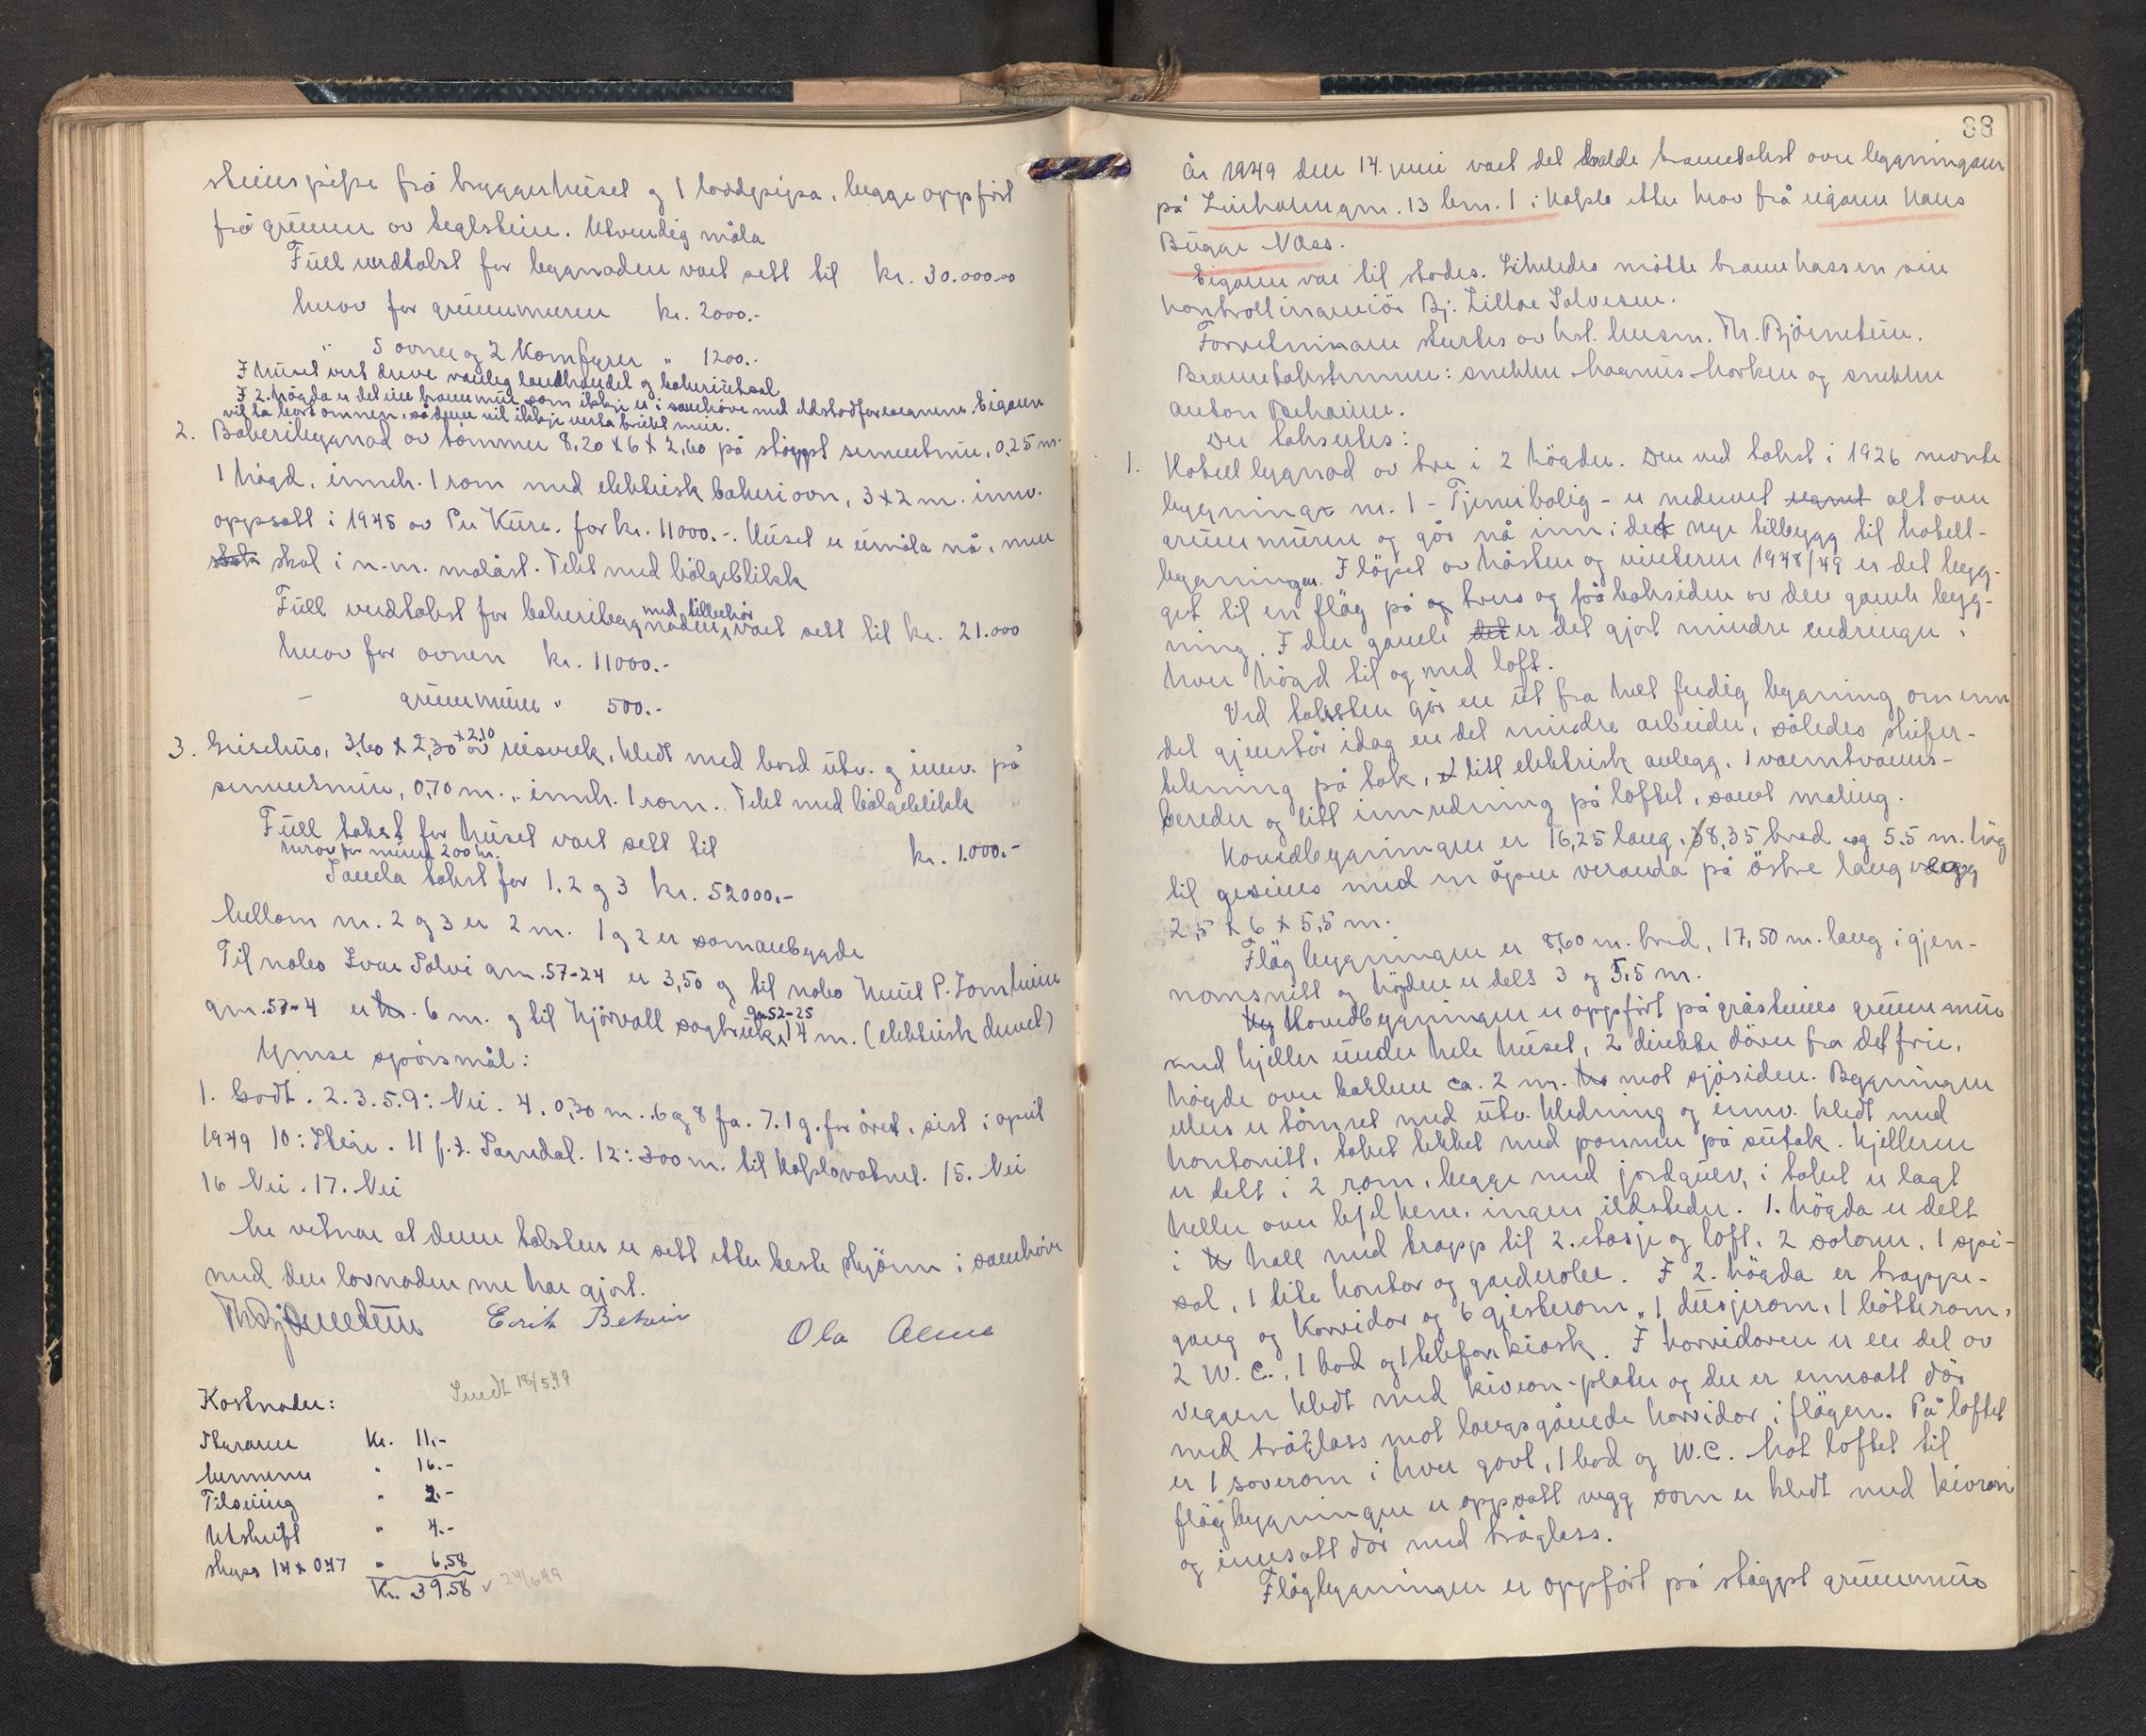 steinspipe frå bryggerhuset og 1 loddpipa, begge oppfört
frå grunnen av teglstein. Utvendig måla
Full verdtakst for bygnaden vart sett til kr. 30.000.00
herav for grunnmuren kr. 2000.-
" 5 ovner og 2 Komfyrer " 1200.-
I huset vert dreve vanleg landhandel og bakeriutsal
I 2. högda er det ein brannmur som ikkje er i samhöve med eldstadforesegnene. Eigaren
vil ta bort omnen, så denne vil ikkje verta brukt meir.
2. Bakeribygnad av tömmer 8,20 x 6 x 2,60 på stöypt sementmur, 0,25 m.
1 högd, innch. 1 rom med elektrisk bakeriovn, 3 x 2 m. innv.
oppsatt i 1948 av Per Kure. for kr. 11000.-. Huset er umåla nå, men
skal i n.m. målast. Tekt med bölgeblikk
Full verdtakst for bakeribygnaden med tilbehör vart sett til kr. 21.000
herav for ovnen kr. 11000.-
- grunnmur " 500.-
3. Grisehus, 3,60 x 2,30 x 2,10 av reisverk, kledt med bord utv. og innv. på
sementmur, 0,70 m., innh. 1 rom. Tekt med bölgeblikk
Full takst for huset vart sett til kr. 1.000.-
herav for muren 200 kr.
Samla takst for 1. 2 og 3 kr. 52000.-
Mellom nr. 2 og 3 er 2 m. 1 og 2 er samanbygde
Til nabo Ivar Solvi gnr. 57-24 er 3,50 og til nabo Knut P. Lomheim
gnr. 57-4 er 6 m. og til Kjörvall sagbruk, gn 52-25 14 m. (elektrisk drevet)
Ymse spörsmål:
1. Godt. 2. 3. 5. 9: Nei. 4. 0,30 m. 6 og 8 ja. 7. 1 g. for året, sist i april
1949 10: Stige. 11 f. I. Sagedal. 12: 300 m. til Kaplavatnet. 15. Nei
16 Nei. 17. Nei
Me vitnar at denne taksten er sett etter beste skjönn i samhöve
med den lovnaden me har gjort.
Th Björnetun Eirik Ola
Kostnader: Sendt 18/5 49
Styraren Kr. 11.-
Mennene " 16.-
Tilseiing " 2.-
Utskrift " 4.-
Skyss 14 x 0.47 " 6,58
Kr. 39.58 v 24/6 49
88
År 1949 den 14. juni vart det halde branntakst over bygningane
på gnr. 13 bnr. 1 i etter krav frå eigaren Hans
Bugge Næss.
Eigaren var til stades. Likeledes mötte brannkassen sin
kontrollingeniör Bj. Lilloe Salvesen.
Forretningane styrtes av kst. lensm. Th. Björnetun.
Branntakstmenn: snekker Magnus og snekker
Anton
Der takseres:
1. Hotellbygnad av tre i 2 högder. Den ved takst i 1926 nevnte
bygning nr. 1 - Tjenerbolig - er nedrevet alt over
grunnmuren og går nå inn i det nye tilbygg til hotell-
bygningen. I löpet av hösten og vinteren 1948/49 er det byg-
get til en flög på og tvers og på baksiden av den gamle byg-
ning. I den gamle er det gjort mindre endringer i
hver högd til og med loft.
Ved taksten går en ut fra helt ferdig bygning om enn
det gjenstår idag en del mindre arbeider, således skifer-
tekning på tak, litt elektrisk anlegg, 1 varmtvanns-
bereder og litt innredning på loftet, samt maling.
Hovedbygningen er 16,25 lang, 8,35 bred og 5.5 m. hög
til gesims med en åpen veranda på östre langvegg
2,5 x 6 x 5,5 m.
Flögbygningen er 8,60 m. bred, 17,50 m. lang i gjen-
nomsnitt og höyden er dels 3 og 5,5 m.
Hovedbygningen er oppfört på gråsteins grunnmur
med kjeller under hele huset, 2 direkte dörer fra det frie,
högde over bakken ca. 2 m. mot sjösiden. Bygningen
ellers er tömret med utv. kledning og innv. kledt med
huntonitt, taket tekket med panner på sutak. Kjelleren
er delt i 2 rom, begge med jordgulv, i taket er lagt
heller over bjelkene, ingen ildsteder. 1. högda er delt
i hall med trapp til 2. etasje og loft, 2 salonger, 1 spi-
sal, 1 lite kontor og garderobe. I 2. högda er trappe-
gang og Korridor og 6 gjesterom, 1 dusjerom, 1 bötterom,
2 W.C., 1 bad og 1 telefonkiosk. I korridoren er en del av
veggen kledt med kivron-plater og der er innsatt dör
med trådglass mot langsgående korridor i flögen. På loftet
er 1 soverom i hver gavl, 1 bod og W.C. Mot loftet til
flögbygningen er oppsatt vegg som er kledt med kivron
og innsatt dör med trådglass.
Flögbygningen er oppfört på stöypt grunnmur